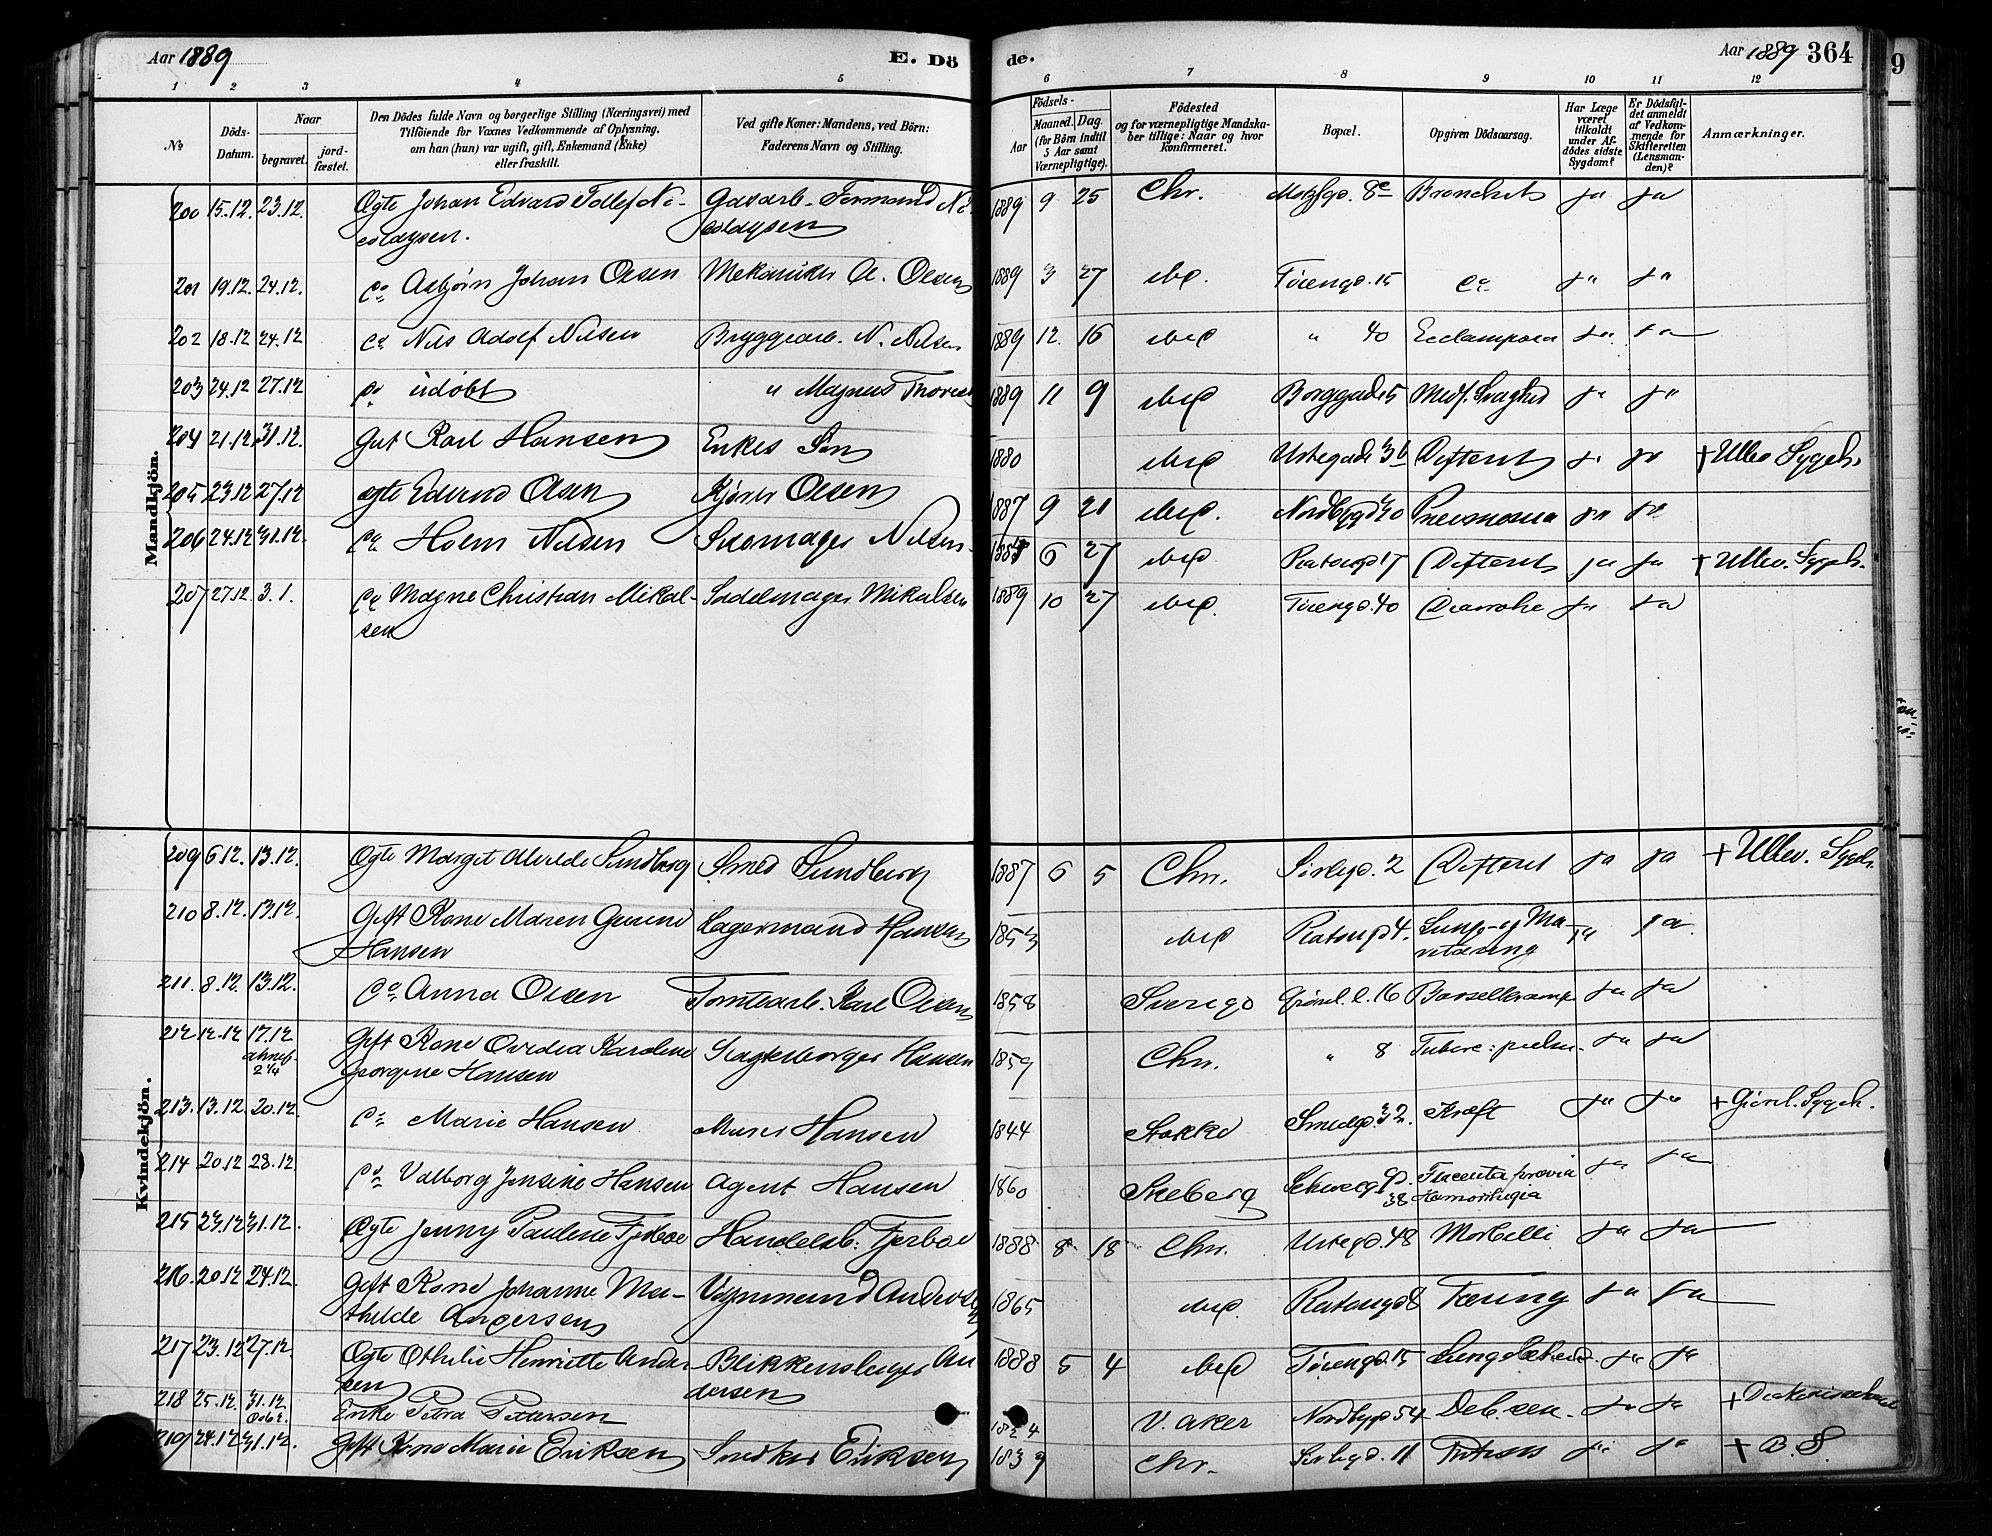 Aar 1889
E. Dö
de.
Aar 1889 364
9
1 2 3 4 5 6 7 8 9 10 11 12
No
Döds-
Datum.
Naar
begravet.
jord-
fæstet.
Den Dödes fulde Navn og borgerlige Stilling (Næringsvei) med
Tilföiende for Voxnes Vedkommende af Oplysning,
om han (hun) var ugift, gift, Enkemand (Enke)
eller fraskilt.
Ved gifte Koner: Mandens, ved Börn:
Faderens Navn og Stilling.
Födsels-
Aar
Maaned. Dag.
(for Börn indtil
5 Aar samt
Værnepligtige).
Födested
og for værnepligtige Mandska-
ber tillige: Naar og hvor
konfirmeret.
Bopæl.
Opgiven Dödsaarsag.
Har Læge
været
tilkaldt
under Af-
dödes sidste
Sygdom?
Er Dödsfal-
det anmeldt
af Vedkom-
mende for
Skifteretten
(Lensman-
den)?
Anmærkninger.
Mandkjön.
200 15.12. 23.12. Ægte Johan Edvard Tollef Ni- Gasarb. Formand Ni- 1889 9 25 Chr. Motzfgd. 8c Bronchit ja ja
colaysen. colaysen
201 19.12. 24.12. do Asbjørn Johan Olsen Mekaniker A. Olsen 1889 3 27 ibid. Tøiengd. 15 do ja ja
202 18.12 24.12 do Nils Adolf Nilsen Bryggearb. N. Nilsen 1889 12. 16 ibid " 40 Eclampsia ja ja
203 24.12 27.12 do udøbt " Magnus 1889 11 9 ibid Borggad 5 Medf. Svaghed ja ja
204 21.12. 31.12. Gut Karl Hansen Enkes Søn 1880 ibid Urtegade 36 Difterit ja ja + Ullev. Sygeh.
205 23.12 27.12 ægte Edvard Olsen Kjører Olsen 1887 9 21 ibid. Nordbygd 40 Pneumonia ja ja
206 24.12 31.12. do Holm Nilsen Skomager Nilsen 6 27 ibid Platougd 17 Difterit ja ja + Ullev. Sygeh.
207 27.12. 3.1. do Magne Christian Mikal- Sadelmager Mikalsen 1889 10 27 ibid. Tøiengd. 40 Diarrohe ja ja
sen
Kvindekjön.
209 6.12. 13.12. Ægte Margit Alvilde Sundberg Smed Sundberg 1887 6 5 Chr. 2 Difterit ja ja + Ullev. Sygeh.
210 8.12. 13.12. Gift Kone Maren Gurine Lagermand Hansen 1853 ibid Platougd 4. Lung- og Ma- ja ja.
Hansen
211. 8.12. 13.12. do Anna Olsen Tomtearb. Karl Olsen 1858 Sverige Grønl. l. 16 Barselkramp ja ja
212 12.12 17.12 Gift Kone Ovidia Karoline Slagterborger Hansen 1859 Chr. " 8 Tuberc: pulm. ja ja
Georgine Hansen
213. 13.12. 20.12. do Marie Hansen Murer Hansen 1844 Stokke Smedgd. 32. Kræft ja ja + Grønl. Sygeh.
214 20.12 28.12. do Valborg Jensine Hansen Agent Hansen 1860 Skeberg Schweigd. Placenta prævia ja ja
38 Hæmorrhagia
215 23.12 31.12. Ægte Jenny Pauline Fjerboe Handelsb. Fjerboe 1888 8 18 Chr. Urtegd. 48 Morbilli ja ja
216. 20.12 24.12. Gift Kone Johanne Ma- Vognmand Andersen 1865 ibid. Platougd 8 Tæring ja ja
thilde Andersen
217 23.12 27.12. Ægte Othilie Henriette Ander- Blikkenslager An 1888 5 4 ibid Tøiengd. 15 ja ja
sen dersen
218 25.12. 31.12 Enke Petra Petersen 1824 V. Aker Nordbygd 54 Deb. sen. ja ja + Diakonissehuset
219 24.12 31.12. Gift Kone Marie Eriksen Snedker Eriksen 1839 Chr. 11 ja ja + B. S.